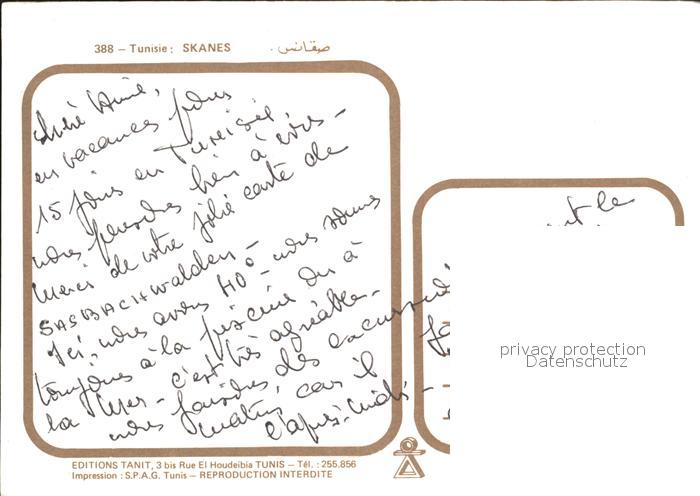 388 – Tunisie : SKANES صقانس.
Chère Amie,
en vacances pour
15 jours en Tunisie
nous pensons bien à vous –
Merci de votre jolie carte de
SASBACHWALDEN –
Ici, nous avons 40° – nous sommes
toujours à la piscine ou à
la Mer – c'est très agréable –
nous faisons des excursions
matin, car il
l'après-midi –
le
privacy protection
Datenschutz
EDITIONS TANIT, 3 bis Rue El Houdeibia TUNIS – Tél. : 255.856
Impression : S.P.A.G. Tunis – REPRODUCTION INTERDITE